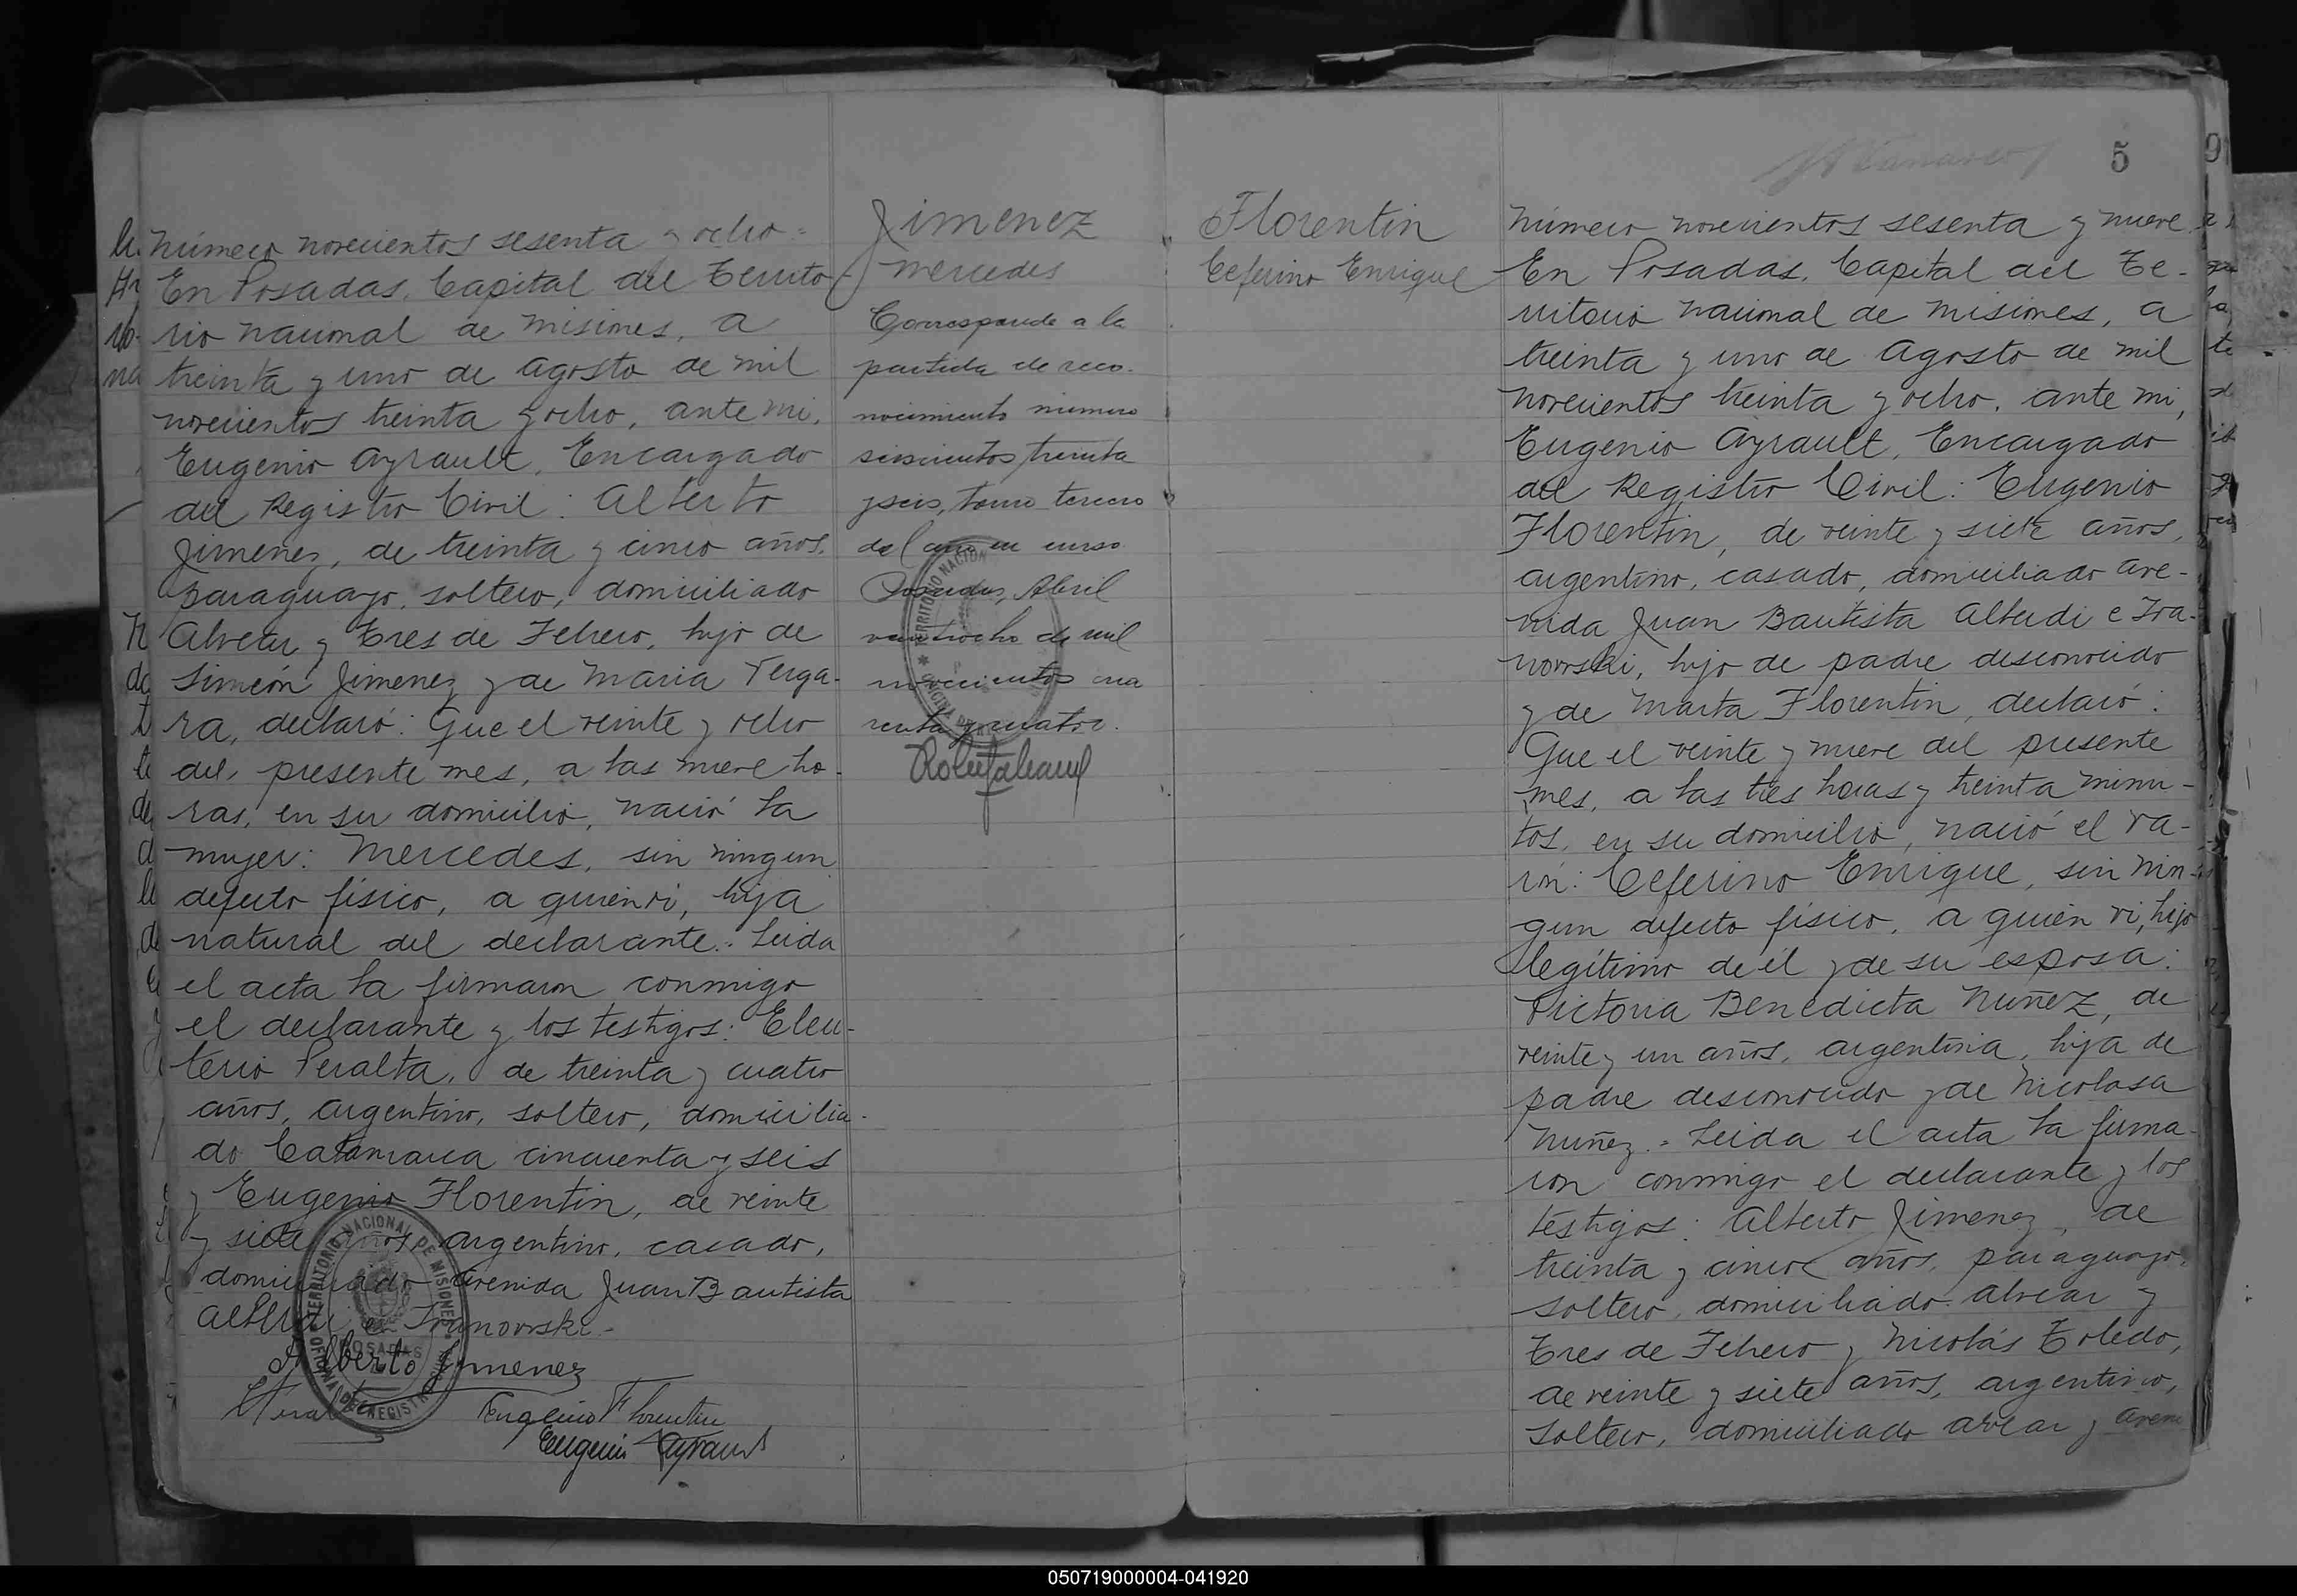 Número novecientos sesenta y ocho =
En Posadas, Capital del Territo-
rio Nacional de Misiones, a
treinta y uno de Agosto de mil
novecientos treinta y ocho, ante mi,
Eugenio Ayrault, Encargado
del Registro Civil: Alberto
Jimenez, de treinta y cinco años,
paraguayo, soltero, domiciliado
Alvear y Tres de Febrero, hijo de
Simeón Jimenez y de Maria Verga-
ra, declaró: Que el veinte y ocho
del presente mes, a las nueve ho-
ras, en su domicilio, nació la
mujer: Mercedes, sin ningun
defecto físico, a quien vi, hija
natural del declarante.- Leida
el acta la firmaron conmigo
el declarante y los testigos: Eleu-
terio Peralta, de treinta y cuatro
años, argentino, soltero, domicilia-
do Catamarca cincuenta y seis
y Eugenio Florentin, de veinte
y siete años, argentino, casado,
domiciliado Avenida Juan Bautista
Alberdi e Ivanowski.-
Alberto Jimenez
Eugenio Florentin
Eugenio Ayrault
TERRITORIO NACIONAL DE MISIONES
POSADAS
OFICINA DE REGISTRO CIVIL
Jimenez
Mercedes
Corresponde a la
partida de reco-
nocimiento número
seiscientos treinta
y seis, tomo tercero
del año en curso
Posadas, Abril
veintiocho de mil
novecientos cua
renta y cuatro.
TERRITORIO NACION
OFICINA DE
Florentin
Ceferino Enrique
5
Número novecientos sesenta y nueve
En Posadas, Capital del Te-
rritorio Nacional de Misiones, a
treinta y uno de Agosto de mil
novecientos treinta y ocho, ante mi,
Eugenio Ayrault, Encargado
del Registro Civil: Eugenio
Florentin, de veinte y siete años,
argentino, casado, domiciliado Ave-
nida Juan Bautista Alberdi e Iva-
nowski, hijo de padre desconocido
y de Marta Florentin, declaró:
Que el veinte y nueve del presente
mes, a las tres horas y treinta minu-
tos, en su domicilio, nació el va-
rón: Ceferino Enrique, sin nin-
gun defecto físico, a quién vi, hijo
legítimo de él y de su esposa:
Victoria Benedicta Nuñez, de
veinte y un años, argentina, hija de
padre desconocido y de Nicolasa
Nuñez.- Leida el acta la firma-
ron conmigo el declarante y los
testigos: Alberto Jimenez, de
treinta y cinco años, paraguayo,
soltero, domiciliado Alvear y
Tres de Febrero y Nicolás Toledo,
de veinte y siete años, argentino,
soltero, domiciliado Alvear y Aveni
050719000004-041920